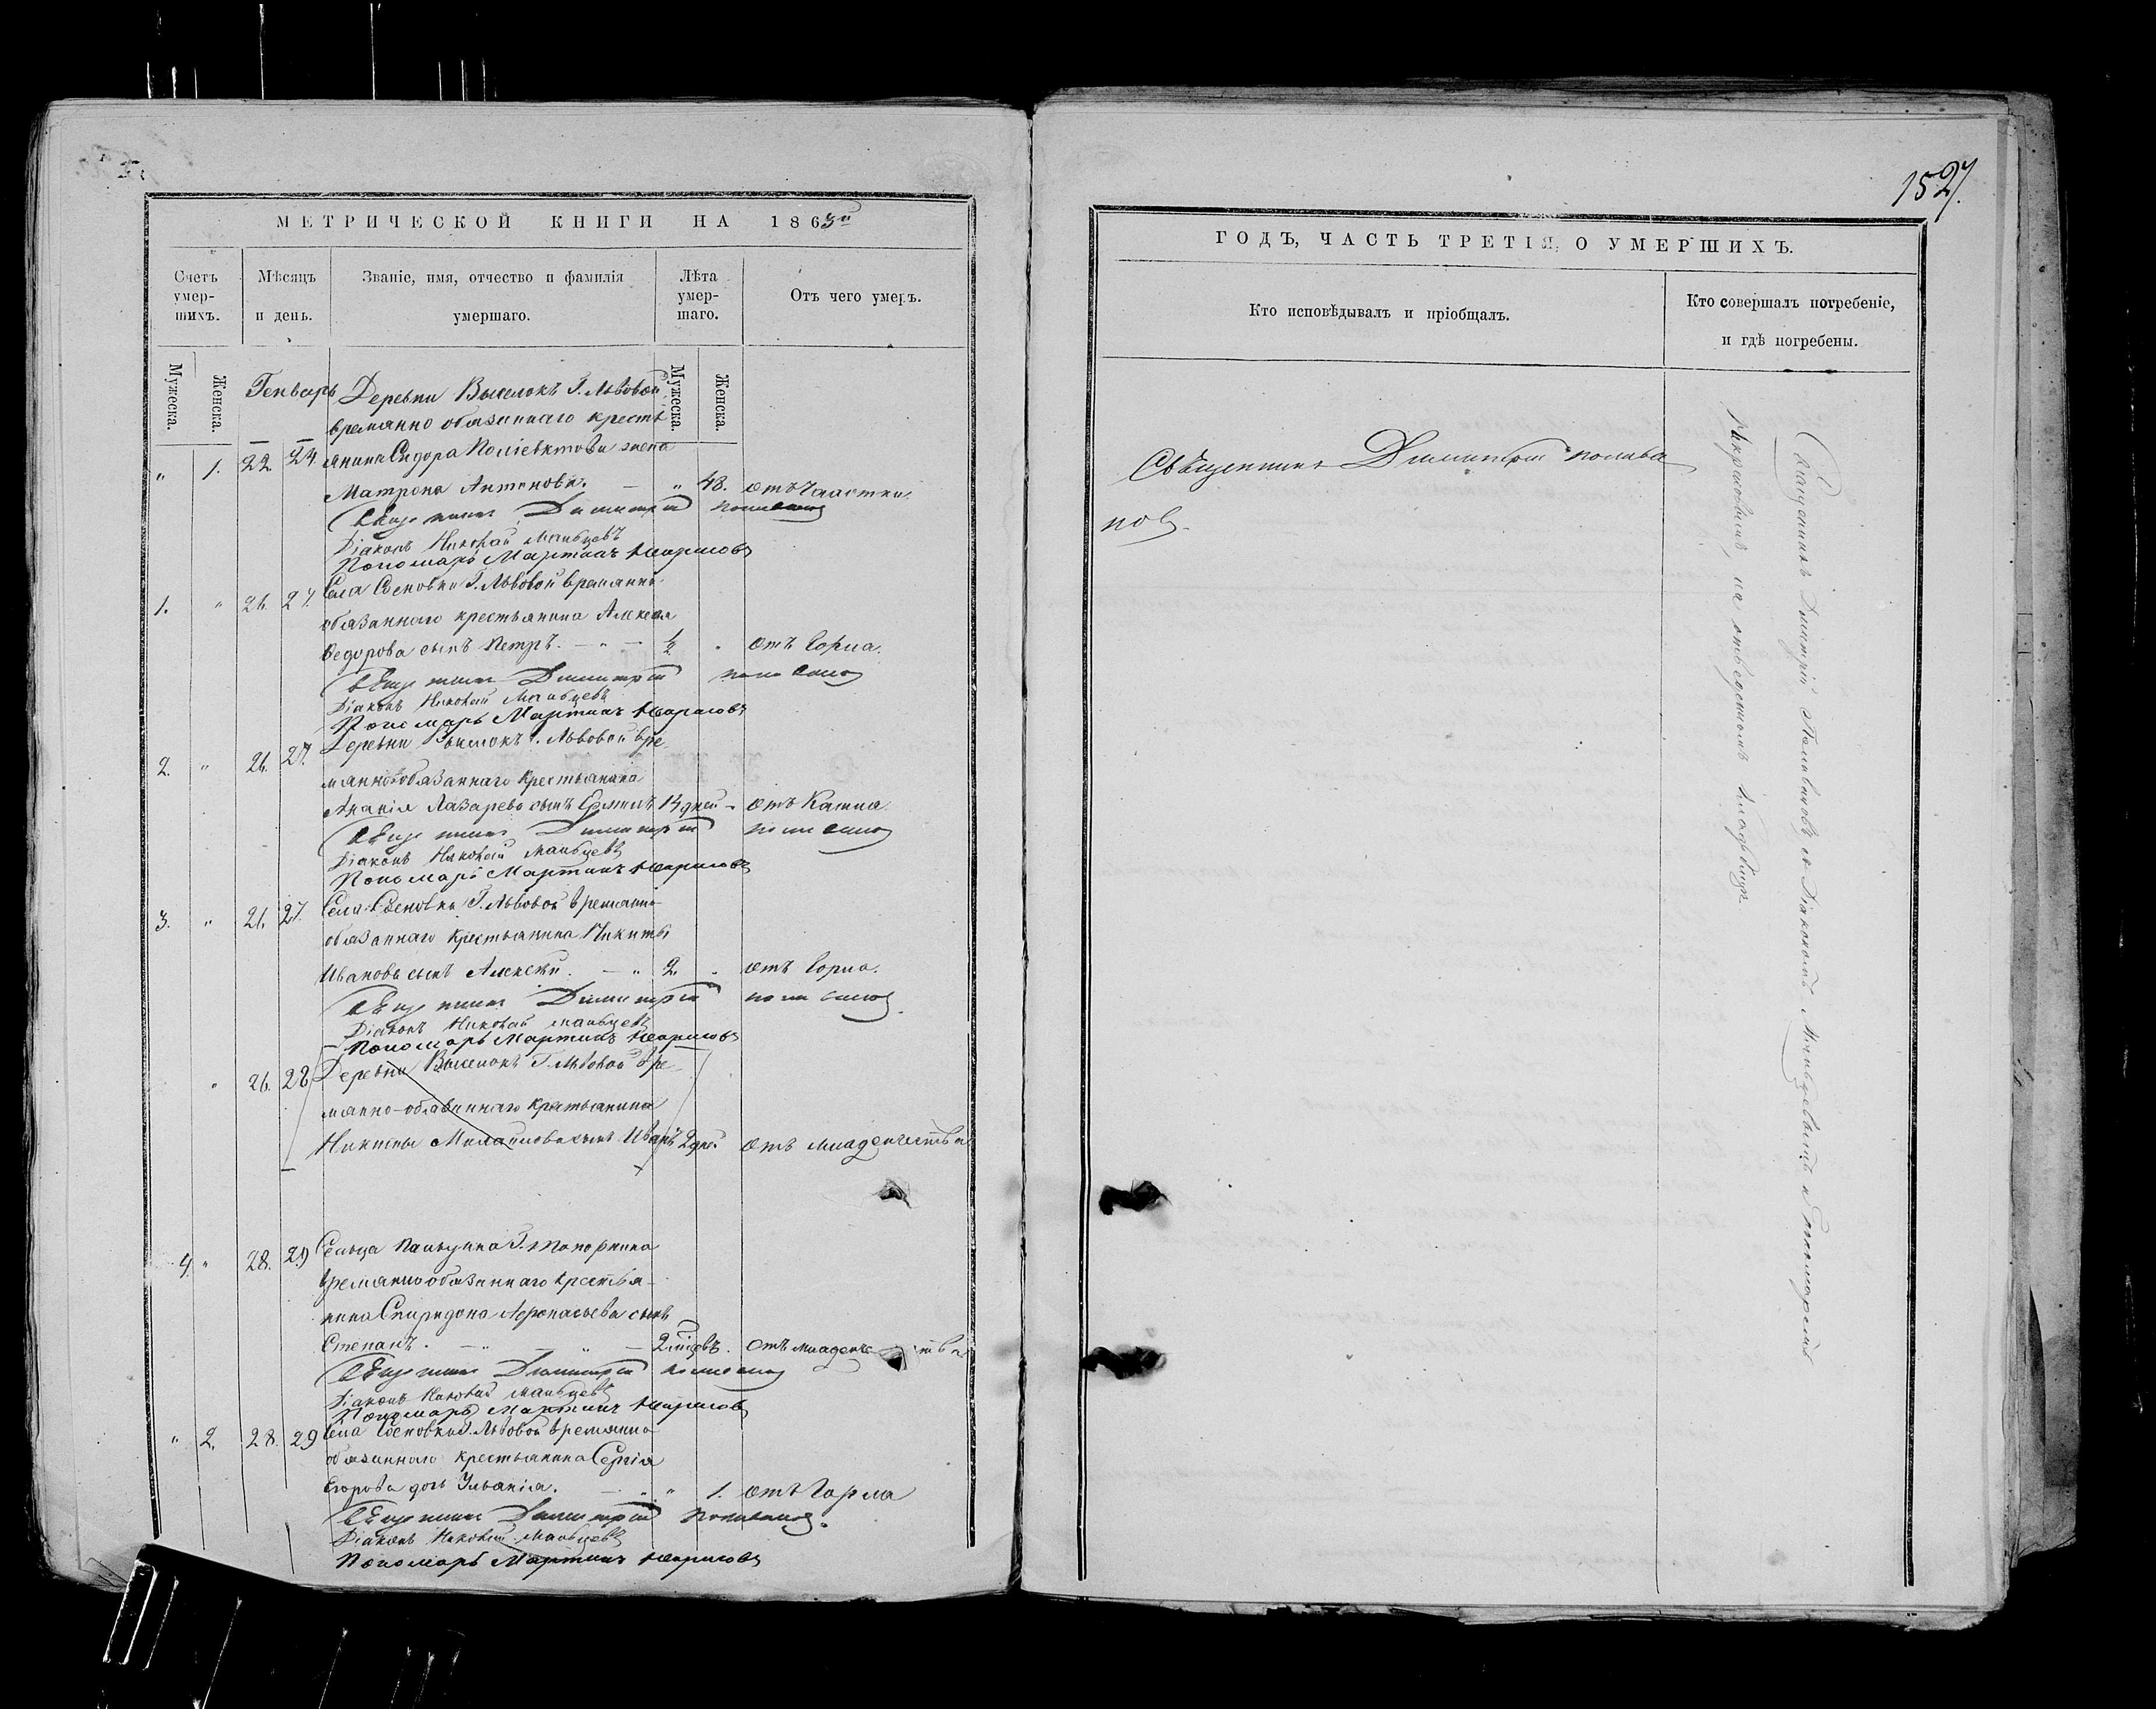 МЕТРИЧЕСКОЙ КНИГИ НА 1863й
Счетъ умер-шихъ.
Мѣсяцъ и день.
Званіе, имя, отчество и фамилія умершаго.
Лѣта умер-шаго.
Отъ чего умеръ.
Мужеска.
Женска.
Мужеска.
Женска.
Генварь
Деревни Выселокъ Г. Львовой
временно обязаннаго кресть
" 1. 22. 24. янина Сидора Поліевктова жена
Матрона Антонова. — " 48. отъ Чахотки.
Священникъ Димитрій Поливановъ
Діаконъ Николай Мальцевъ
Пономарь Мартинъ
1. " 26. 27. Села Сосновки Г. Львовой временно
обязаннаго крестьянина Алексея
Федорова сынъ Петръ. — " — ½ . отъ Горла.
Священникъ Димитрій Поливановъ
Діаконъ Николай Мальцевъ
Пономарь Мартинъ
2. " 26. 27. Деревни Выселокъ Г. Львовой вре
мянно обязаннаго Крестьянина
Ананія Лазарева сынъ 14 дней - отъ
Священникъ Димитрій Поливановъ
Діаконъ Николай Мальцевъ
Пономарь Мартинъ
3. " 26. 27. Села Сосновки Г. Львовой временно
обязаннаго Крестьянина Никиты
Иванова сынъ Алексѣй. — " 2. . отъ Горла.
Священникъ Димитрій Поливановъ
Діаконъ Николай Мальцевъ
Пономарь Мартинъ
" 26. 28 Деревни Выселокъ Г. Львовой вре
мянно-обязаннаго Крестьянина
Никиты Михайлова сынъ Иванъ 2 дней отъ младенчества
4. " 28. 29 Сельца Г. Топорнина
временно обязаннаго крестья-
нина Спиридона Афонасьева сынъ
Степанъ. — " — " — 2 міцевъ. отъ младенчества
Священникъ Димитрій Поливановъ
Діаконъ Николай Мальцевъ
Пономарь Мартинъ
" 2. 28. 29 Села Сосновки Г. Львовой временно
обязаннаго крестьянина Сергія
Егорова дочь Ульянія. — " " 1. отъ Горла
Священникъ Димитрій Поливановъ.
Діаконъ Николай Мальцевъ
Пономарь Мартинъ
152
ГОДЪ, ЧАСТЬ ТРЕТІЯ, О УМЕРШИХЪ.
Кто исповѣдывалъ и пріобщалъ.
Кто совершалъ погребеніе, и гдѣ погребены.
Священникъ Димитрій Полива
новъ.
Священникъ Димитрій Поливановъ съ Діакономъ Мальцевымъ и Пономаремъ
на отведенномъ кладбищѣ.